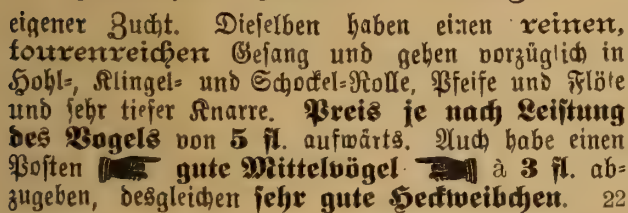 eigener Zucht. Dieselben haben einen reinen,
tourenreichen Gesang und gehen vorzüglich in
Hohl-, Klingel- und Schockel-Rolle, Pfeife und Flöte
und sehr tiefer Knarre. Preis je nach Leistung
des Vogels von 5 fl. aufwärts. Auch habe einen
Posten gute Mittelvögel à 3 fl. ab-
zugeben, desgleichen sehr gute Heckweibchen. 22